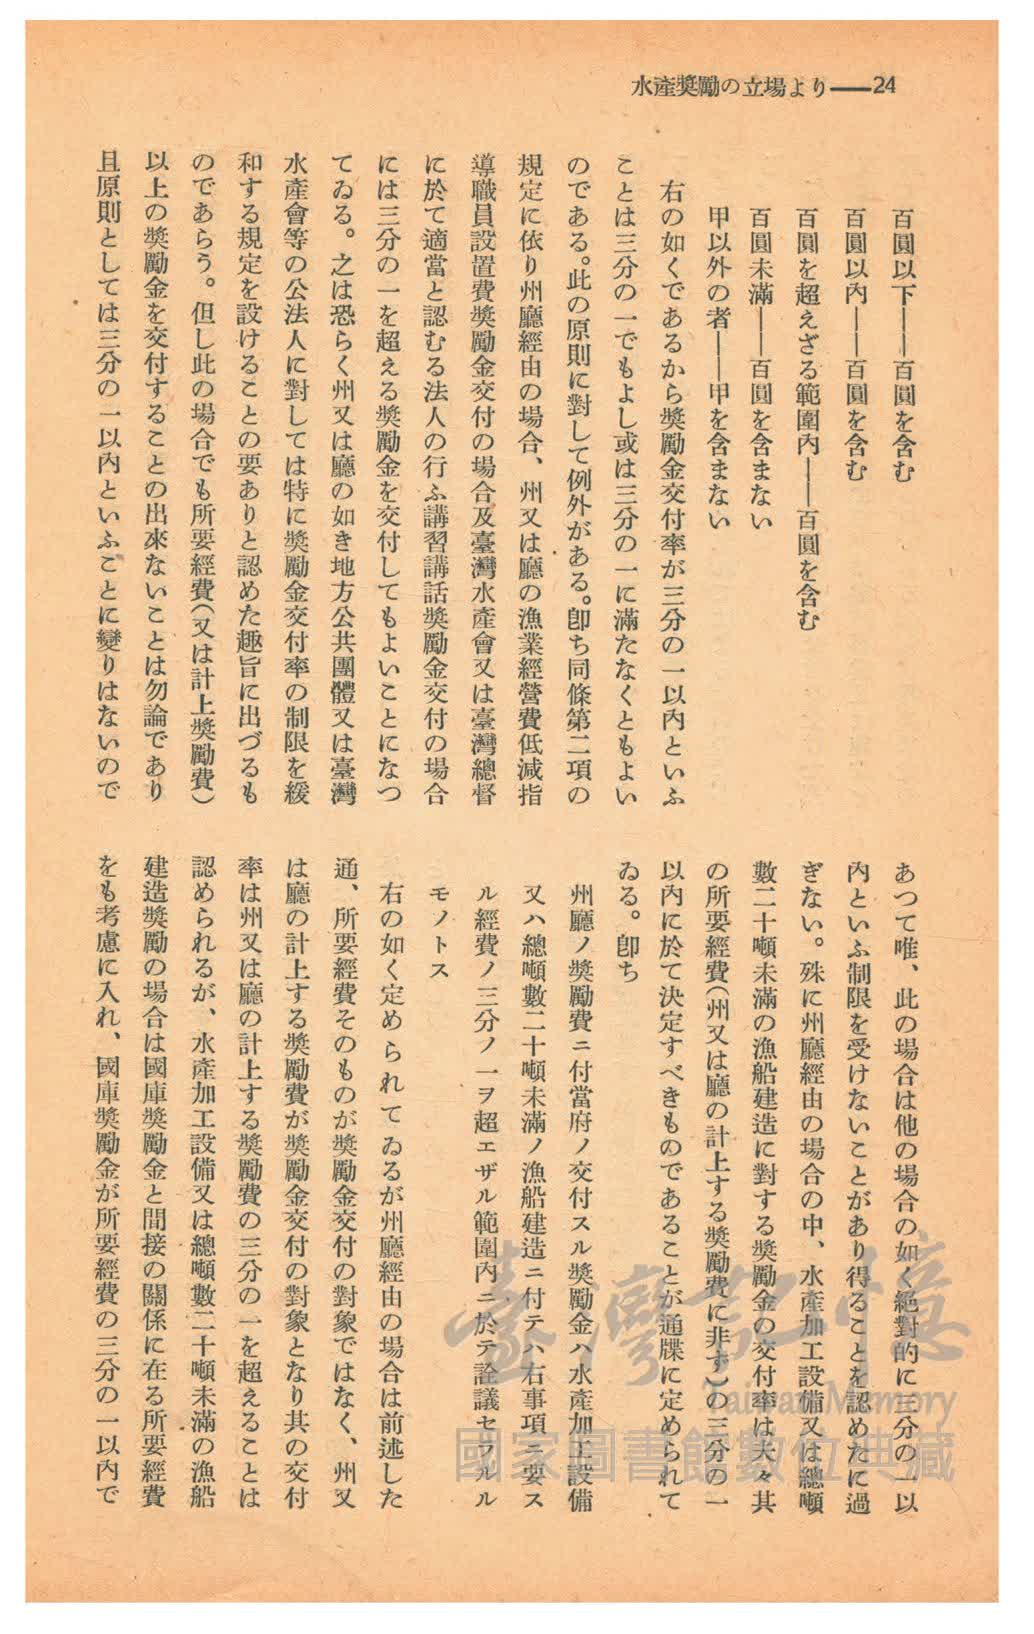 水產奬勵の立場より――24
百圓以下――百圓を含む
百圓以內――百圓を含む
百圓を超えざる範圍內――百圓を含む
百圓未滿――百圓を含まない
甲以外の者――甲を含まない
右の如くであるから奬勵金交付率が三分の一以內といふ
ことは三分の一でもよし或は三分の一に滿たなくともよい
のである。此の原則に對して例外がある。卽ち同條第二項の
規定に依り州廳經由の場合、州又は廳の漁業經營費低減指
導職員設置費奬勵金交付の場合及臺灣水產會又は臺灣總督
に於て適當と認むる法人の行ふ講習講話奬勵金交付の場合
には三分の一を超える奬勵金を交付してもよいことになつ
てゐる。之は恐らく州又は廳の如き地方公共團體又は臺灣
水產會等の公法人に對しては特に奬勵金交付率の制限を緩
和する規定を設けることの要ありと認めた趣旨に出づるも
のであらう。但し此の場合でも所要經費(又は計上奬勵費)
以上の奬勵金を交付することの出來ないことは勿論であり
且原則としては三分の一以內といふことに變りはないので
あつて唯、此の場合は他の場合の如く絕對的に三分の一以
內といふ制限を受けないことがあり得ることを認めたに過
ぎない。殊に州廳經由の場合の中、水產加工設備又は總噸
數二十噸未滿の漁船建造に對する奬勵金の交付率は夫々其
の所要經費(州又は廳の計上する奬勵費に非ず)の三分の一
以內に於て決定すべきものであることが通牒に定められて
ゐる。卽ち
州廳ノ奬勵費ニ付當府ノ交付スル奬勵金ハ水產加工設備
又ハ總噸數二十噸未滿ノ漁船建造ニ付テハ右事項ニ要ス
ル經費ノ三分ノ一ヲ超エザル範圍內ニ於テ詮議セラルル
モノトス
右の如く定められてゐるが州廳經由の場合は前述した
通、所要經費そのものが奬勵金交付の對象ではなく、州又
は廳の計上する奬勵費が奬勵金交付の對象となり其の交付
率は州又は廳の計上する奬勵費の三分の一を超えることは
認められるが、水產加工設備又は總噸數二十噸未滿の漁船
建造奬勵の場合は國庫奬勵金と間接の關係に在る所要經費
をも考慮に入れ、國庫奬勵金が所要經費の三分の一以內で
臺灣記憶
Taiwan Memory
國家圖書館數位典藏